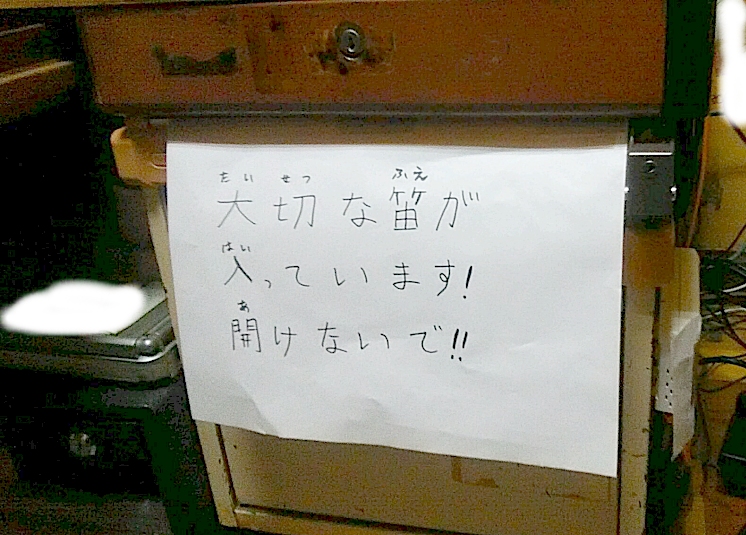 たいせつ ふえ
大切な笛が
はい
入っています!
あ
開けないで!!